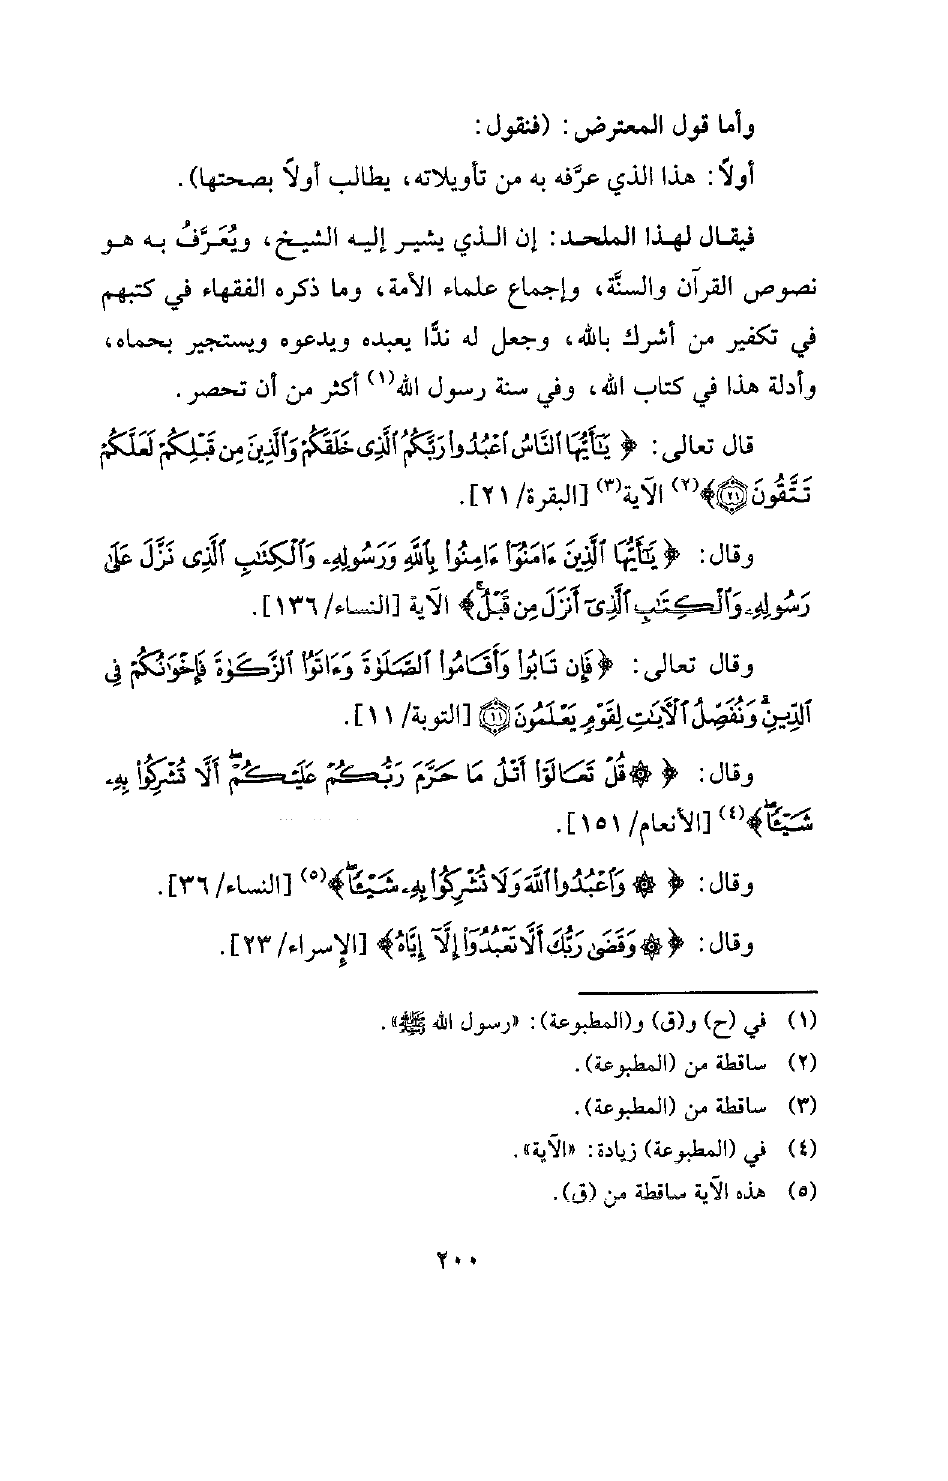 وأما قول المعترض: (فنقول:
أولاً: هذا الذي عرَّفه به من تأويلاته، يطالب أولاً بصحتها).
فيقال لهذا الملحد: إن الذي يشير إليه الشيخ، ويُعَرَّفُ به هو
نصوص القرآن والسنَّة، وإجماع علماء الأمة، وما ذكره الفقهاء في كتبهم
في تكفير من أشرك بالله، وجعل له ندًّا يعبده ويدعوه ويستجير بحماه،
وأدلة هذا في كتاب الله، وفي سنة رسول الله(١) أكثر من أن تحصر.
قال تعالى: ﴿ يَٰٓأَيُّهَا ٱلنَّاسُ ٱعْبُدُوا۟ رَبَّكُمُ ٱلَّذِى خَلَقَكُمْ وَٱلَّذِينَ مِن قَبْلِكُمْ لَعَلَّكُمْ
تَتَّقُونَ ٢١﴾(٢) الآية(٣) [البقرة/ ٢١].
وقال: ﴿ يَٰٓأَيُّهَا ٱلَّذِينَ ءَامَنُوٓا۟ ءَامِنُوا۟ بِٱللَّهِ وَرَسُولِهِۦ وَٱلْكِتَٰبِ ٱلَّذِى نَزَّلَ عَلَىٰ
رَسُولِهِۦ وَٱلْكِتَٰبِ ٱلَّذِىٓ أَنزَلَ مِن قَبْلُ ۚ﴾ الآية [النساء/ ١٣٦].
وقال تعالى: ﴿فَإِن تَابُوا۟ وَأَقَامُوا۟ ٱلصَّلَوٰةَ وَءَاتَوُا۟ ٱلزَّكَوٰةَ فَإِخْوَٰنُكُمْ فِى
ٱلدِّينِ ۗ وَنُفَصِّلُ ٱلْءَايَٰتِ لِقَوْمٍ يَعْلَمُونَ ١١﴾ [التوبة/ ١١].
وقال: ﴿ ۞ قُلْ تَعَالَوْا۟ أَتْلُ مَا حَرَّمَ رَبُّكُمْ عَلَيْكُمْ ۖ أَلَّا تُشْرِكُوا۟ بِهِۦ
شَيْـًٔا ۖ﴾(٤) [الأنعام/ ١٥١].
وقال: ﴿ ۞ وَٱعْبُدُوا۟ ٱللَّهَ وَلَا تُشْرِكُوا۟ بِهِۦ شَيْـًٔا ۖ﴾(٥) [النساء/ ٣٦].
وقال: ﴿ ۞ وَقَضَىٰ رَبُّكَ أَلَّا تَعْبُدُوٓا۟ إِلَّآ إِيَّاهُ﴾ [الإسراء/ ٢٣].
(١) في (ح) و(ق) و(المطبوعة): «رسول الله ﷺ».
(٢) ساقطة من (المطبوعة).
(٣) ساقطة من (المطبوعة).
(٤) في (المطبوعة) زيادة: «الآية».
(٥) هذه الآية ساقطة من (ق).
٢٠٠